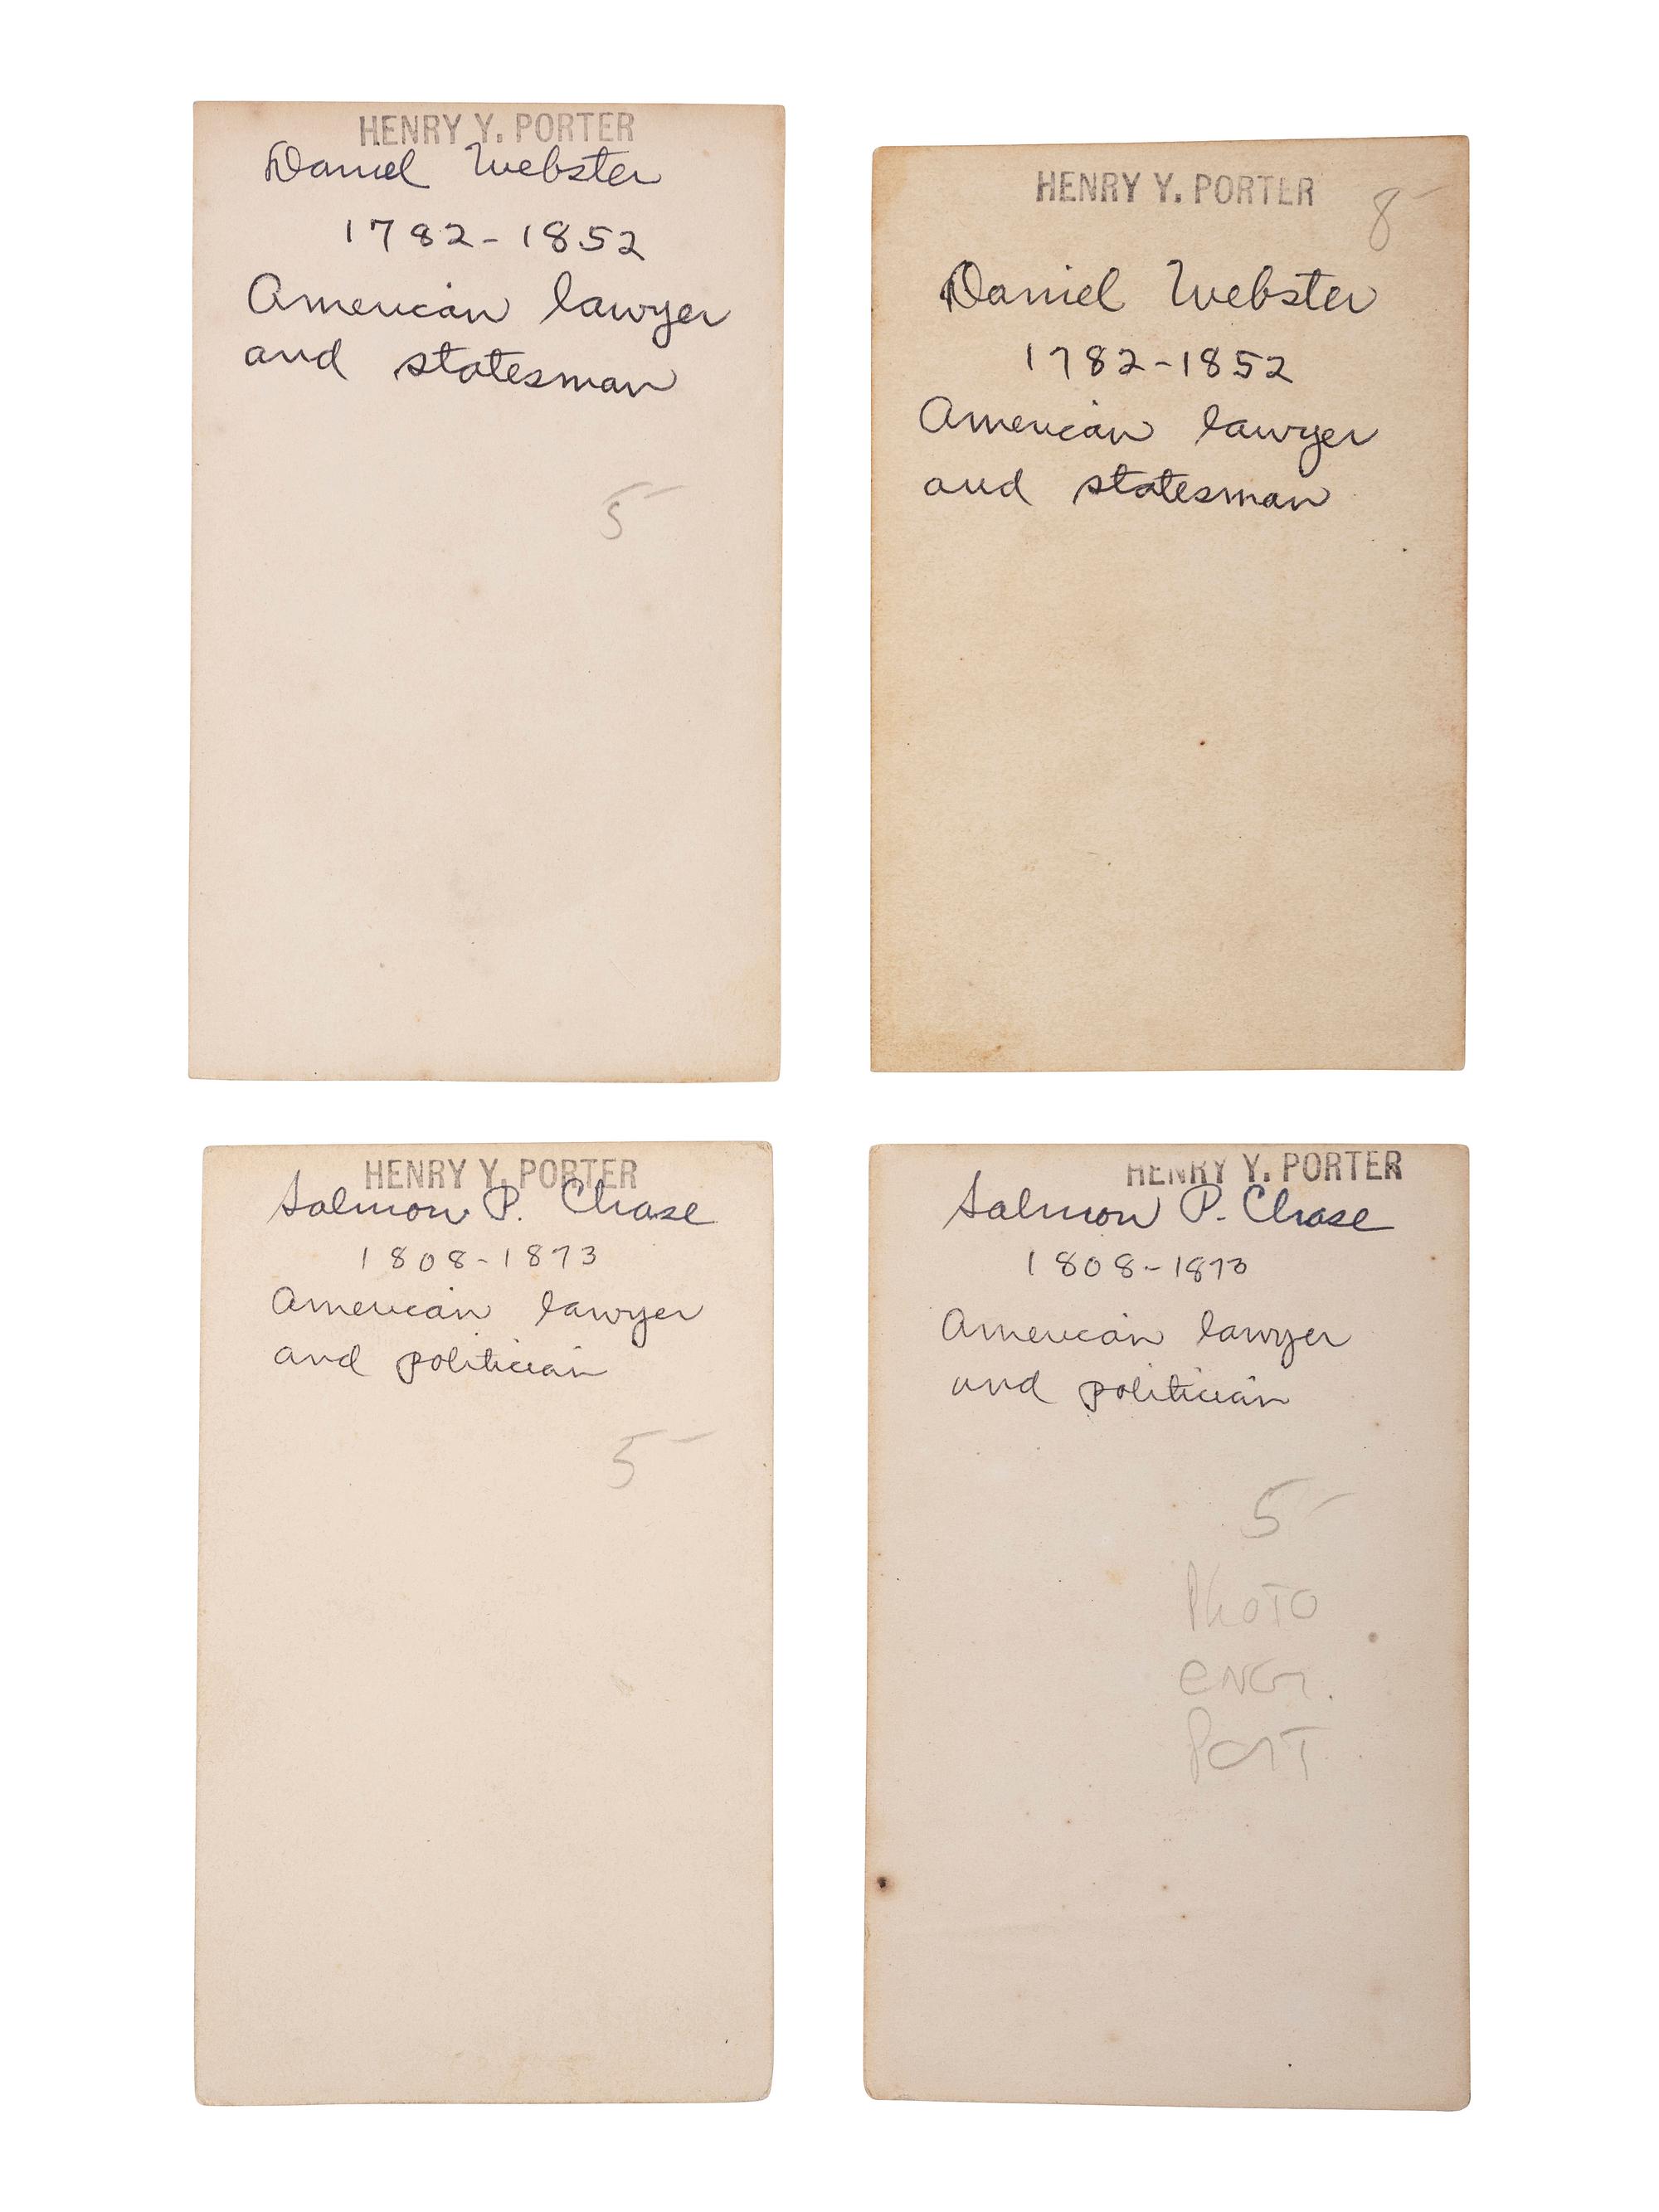 HENRY Y. PORTER
Daniel Webster
1782-1852
American lawyer
and statesman
5-
HENRY Y. PORTER
8-
Daniel Webster
1782-1852
American lawyer
and statesman
HENRY Y. PORTER
Salmon P. Chase
1808-1873
American lawyer
and politician
5-
HENRY Y. PORTER
Salmon P. Chase
1808-1873
American lawyer
and politician
5-
PHOTO
ENGR.
PORT